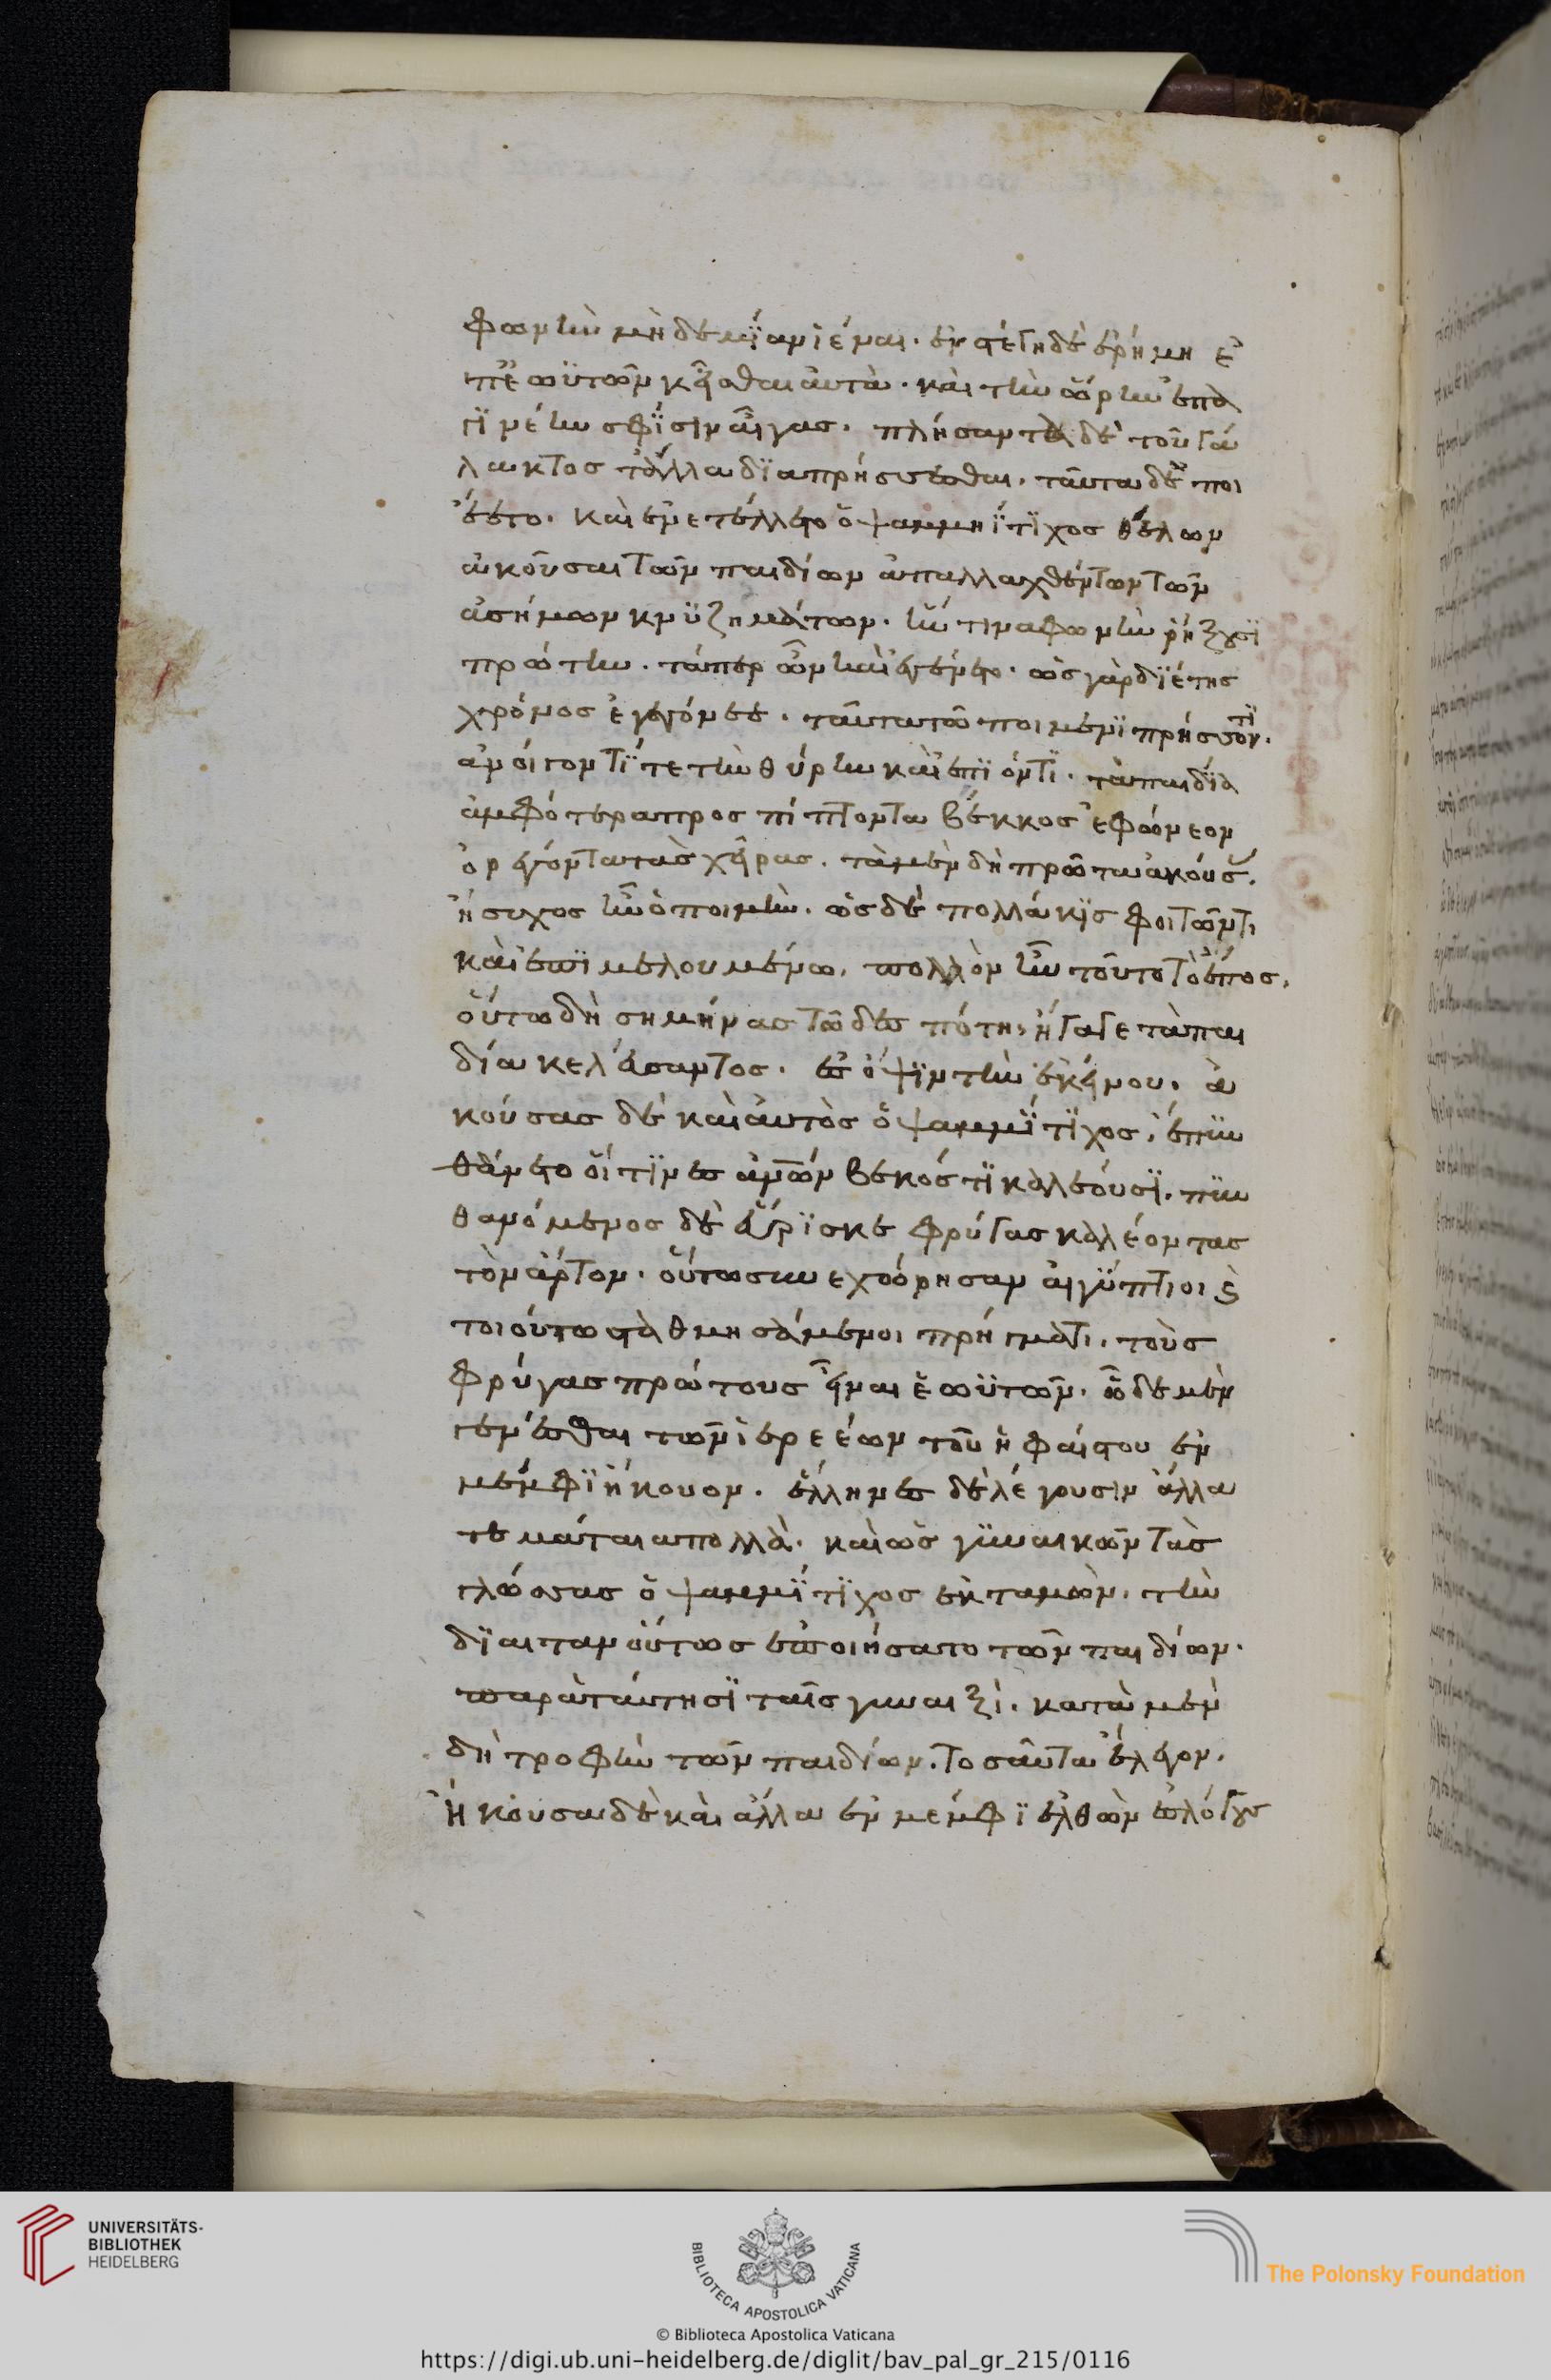 φωνὴν μηδεμίαν ἱέναι. ἐν στέγη δὲ ἐρήμη ἐ
π' ἐωϋτῶν κεῖσθαι αὐτὰ. καὶ τὴν ὥρην ἐπα
γϊνέην σφϊσιν αἶγας. πλήσαντα δὲ τοῦ γά
λακτος τἄλλα δϊαπρήσσεσθαι. ταῦτα δὲ ποι
έετο. καὶ ἐνετέλλετο ὁ ψαμμηΐτϊχος θέλων
ἀκοῦσαι τῶν παιδίων ἀπαλλαχθέντων τῶν
ἀσήμων κνϋζημάτων. ἥν τινα φωνὴν ῥήξουσϊ
πρώτην. τάπερ ὦν καὶ ἐγένετο. ὡς γὰρ δϊέτης
χρόνος ἐγεγόνεε. ταῦτα τῶ ποιμένϊ πρήσσοντϊ.
ἀνοίγοντϊ τε τὴν θύρην καὶ ἐπϊόντϊ. τὰ παιδϊα
ἀμφότερα προσπίπτοντα βέκκος ἐφώνεον
ὀρεγόντα τὰς χεῖρας. τὰ μὲν δὴ πρῶτα ἀκούσας.
ἥσυχος ἦν ὁ ποιμὴν. ὡς δὲ πολλάκϊς φοιτῶντι
καὶ ἐπϊμελουμένω. πολλὸν ἦν τοῦτο τὸ ἔπος.
οὕτω δὴ σημήνας τῶ δεσπότη, ἤγαγε τὰ παι
δία κελεύσαντος. ἐς ὄψϊν τὴν ἐκείνου. ἀ
κούσας δὲ καὶ αὐτὸς ὁ ψαμμίτϊχος, ἐπϋν
θάνετο οἵτϊνες ἀνῶν βεκός τϊ καλεόυσϊ. πϋν
θανόμενος δὲ εὕρϊσκε φρύγας καλέοντας
τὸν ἄρτον. οὕτω συνεχώρησαν αἰγϋπτιοι καὶ
τοιούτω σταθμησάμενοι πρήγματι. τοὺς
φρύγας πρώτους εἶναι ἐωϋτῶν. ὧδε μὲν
γενέσθαι τῶν ἱερεέων τοῦ ἡφαίστου ἐν
μέμφϊ ἤκουον. ἕλληνες δὲ λέγουσιν ἄλλα
τε μάταια πολλὰ. καὶ ὡς γϋναικῶν τὰς
γλώσσας ὁ ψαμμίτϊχος ἐκταμὼν. τὴν
δϊαιταν οὕτως ἐποιήσατο τῶν παιδίων.
παρὰ ταύτησϊ ταῖς γυναιξὶ. κατὰ μὲν
δὴ τροφὴν τῶν παιδίων. τοσαῦτα ἔλεγον.
ἤκουσα δὲ καὶ ἄλλα ἐν μέμφϊ ἐλθὼν ἐς λόγους
UNIVERSITÄTS-
BIBLIOTHEK
HEIDELBERG
BIBLIOTECA APOSTOLICA VATICANA
The Polonsky Foundation
© Biblioteca Apostolica Vaticana
https://digi.ub.uni-heidelberg.de/diglit/bav_pal_gr_215/0116